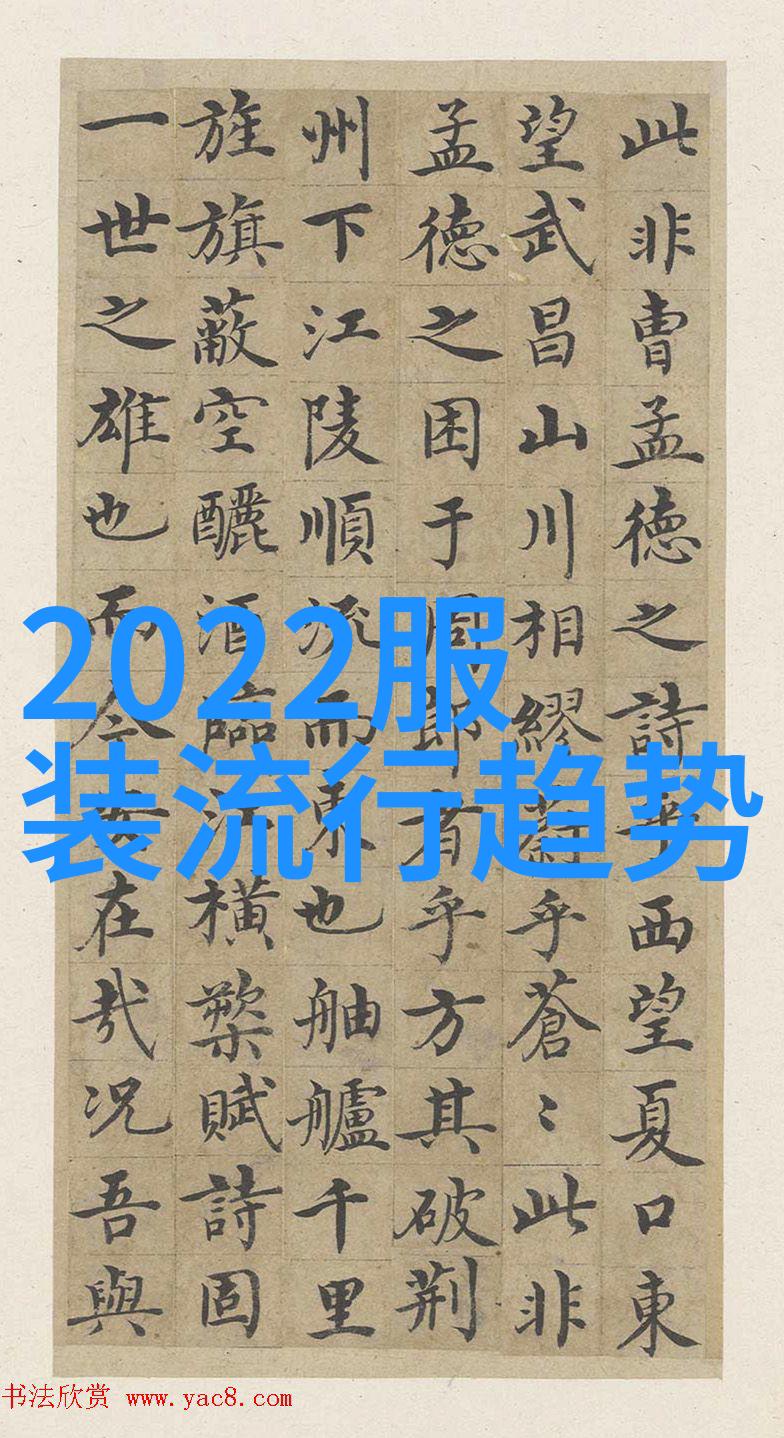 此非曹孟德之詩乎西望夏口東
望武昌山川相繆蔚乎蒼〻此非
孟德之困于周郎者乎方其破荆
州下江陵順流而東也舳艫千里
旌旗蔽空釃酒臨江橫槊賦詩固
一世之雄也而今安在哉况吾與
2022服
装流行趋势
书法欣赏 www.yac8.com